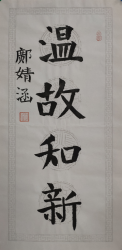 温故知新
鄺婧涵